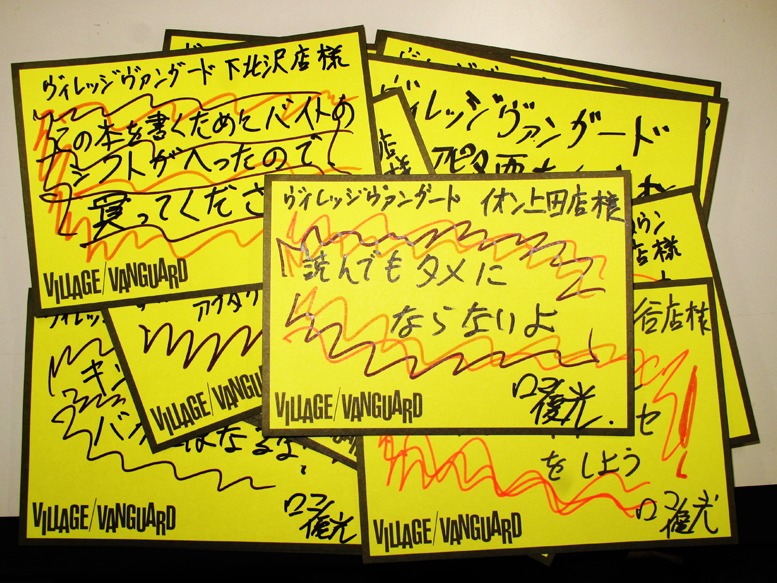 ヴィレッジヴァンガード 下北沢店様
この本を書くためにバイトの
シフトがへったので
買ってくださ
VILLAGE/VANGUARD
ヴィレッジヴァンガード
店様
ヴィレッジヴァンガード イオン上田店様
読んでもタメに
ならないよ
ロマン優光.
VILLAGE/VANGUARD
タウン
店様
谷店様
セ
をしよう
ロマン優光
VILLAGE/VANGUARD
アイタウ
VILLAGE/VANGUARD
キン
バカ
はなるな
ロマン優光
VILLAGE/VANGUARD